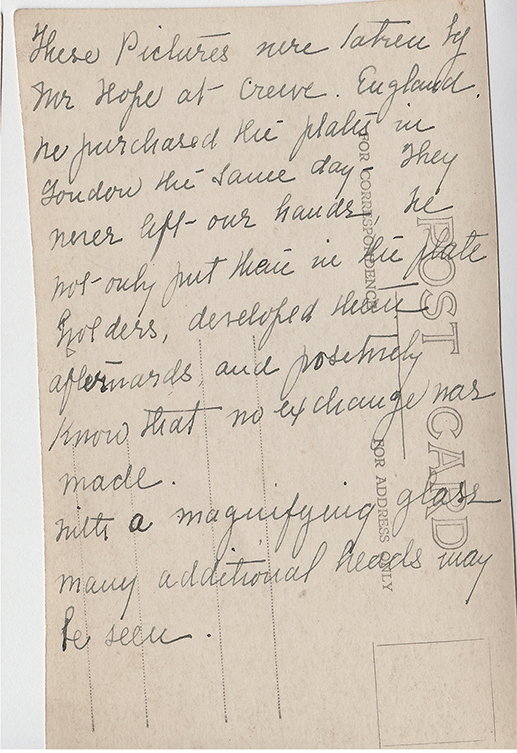 These Pictures were taken by
Mr Hope at Crewe. England.
he purchased the plates in
London the same day. They
never left our hands, he
not only put them in the plate
holders, developed them
afterwards, and positively
know that no exchange was
made.
With a magnifying glass
many additional heads may
be seen.
POST CARD
FOR CORRESPONDENCE
FOR ADDRESS ONLY